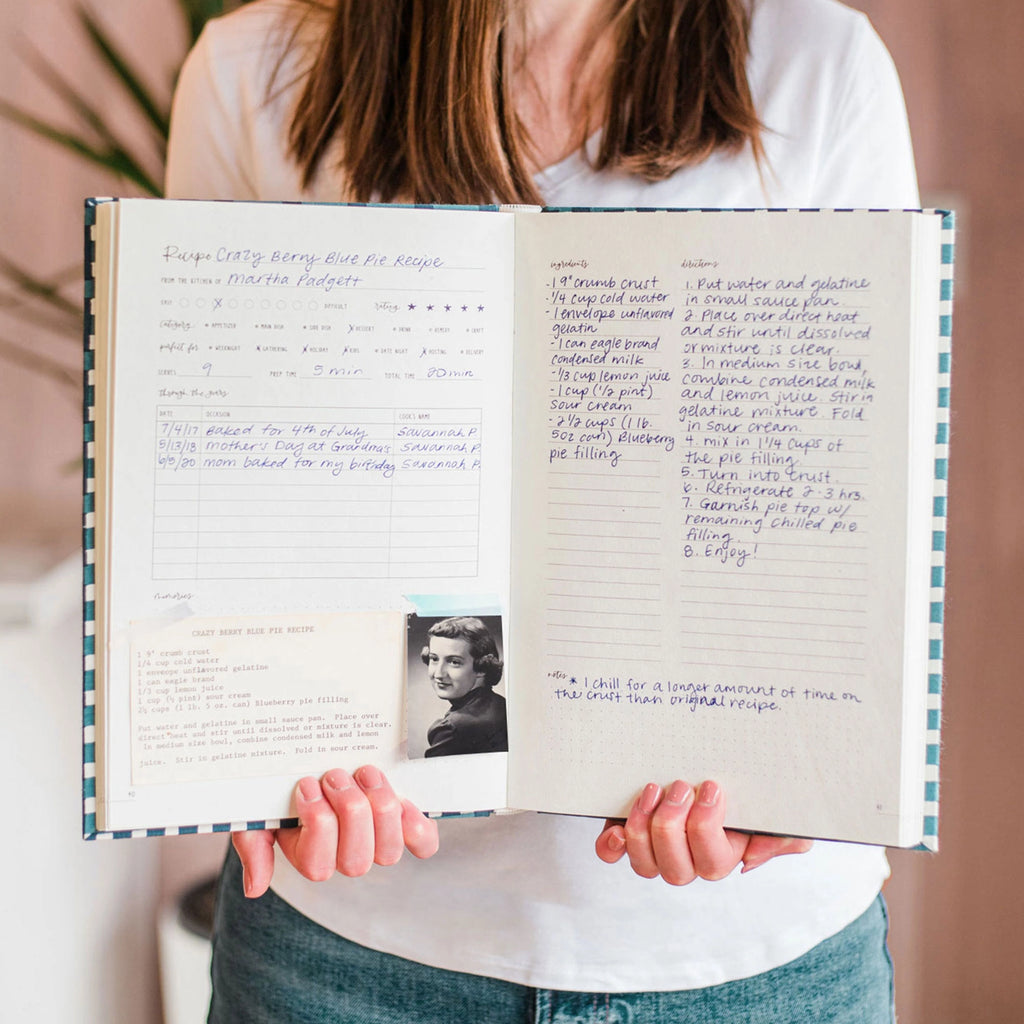 Recipe Crazy Berry Blue Pie Recipe
FROM THE KITCHEN OF Martha Padgett
EASY X DIFFICULT rating ★ ★ ★ ★ ★
Category: APPETIZER MAIN DISH SIDE DISH X DESSERT DRINK REMEDY CRAFT
perfect for WEEKNIGHT X GATHERING X HOLIDAY X KIDS DATE NIGHT X HOSTING DELIVERY
SERVES 9 PREP TIME 5 min TOTAL TIME 20 min
Through the years
DATE OCCASION COOK'S NAME
7/4/17 Baked for 4th of July Savannah P.
5/13/18 Mother's Day at Grandma's Savannah P.
6/3/20 mom baked for my birthday Savannah P.
memories
CRAZY BERRY BLUE PIE RECIPE
1 9" crumb crust
1/4 cup cold water
1 enveope unflavored gelatine
1 can eagle brand
1/3 cup lemon juice
1 cup (½ pint) sour cream
2½ cups (1 lb. 5 oz. can) Blueberry pie filling
Put water and gelatine in small saucepan. Place over
direct heat and stir until dissolved or mixture is clear.
In medium size bowl, combine condensed milk and lemon
juice. Stir in gelatine mixture. Fold in sour cream.
40
ingredients
-1 9" crumb crust
-1/4 cup cold water
-1 envelope unflavored
gelatin
-1 can eagle brand
condensed milk
-1/3 cup lemon juice
-1 cup (1/2 pint)
sour cream
-2 1/2 cups (1 lb.
5oz can) Blueberry
pie filling
directions
1. Put water and gelatine
in small sauce pan.
2. Place over direct heat
and stir until dissolved
or mixture is clear.
3. In medium size bowl,
combine condensed milk
and lemon juice. Stir in
gelatine mixture. Fold
in sour cream.
4. mix in 1 1/4 cups of
the pie filling.
5. Turn into crust.
6. Refrigerate 2-3 hrs.
7. Garnish pie top w/
remaining chilled pie
filling.
8. Enjoy!
notes
* I chill for a longer amount of time on
the crust than original recipe.